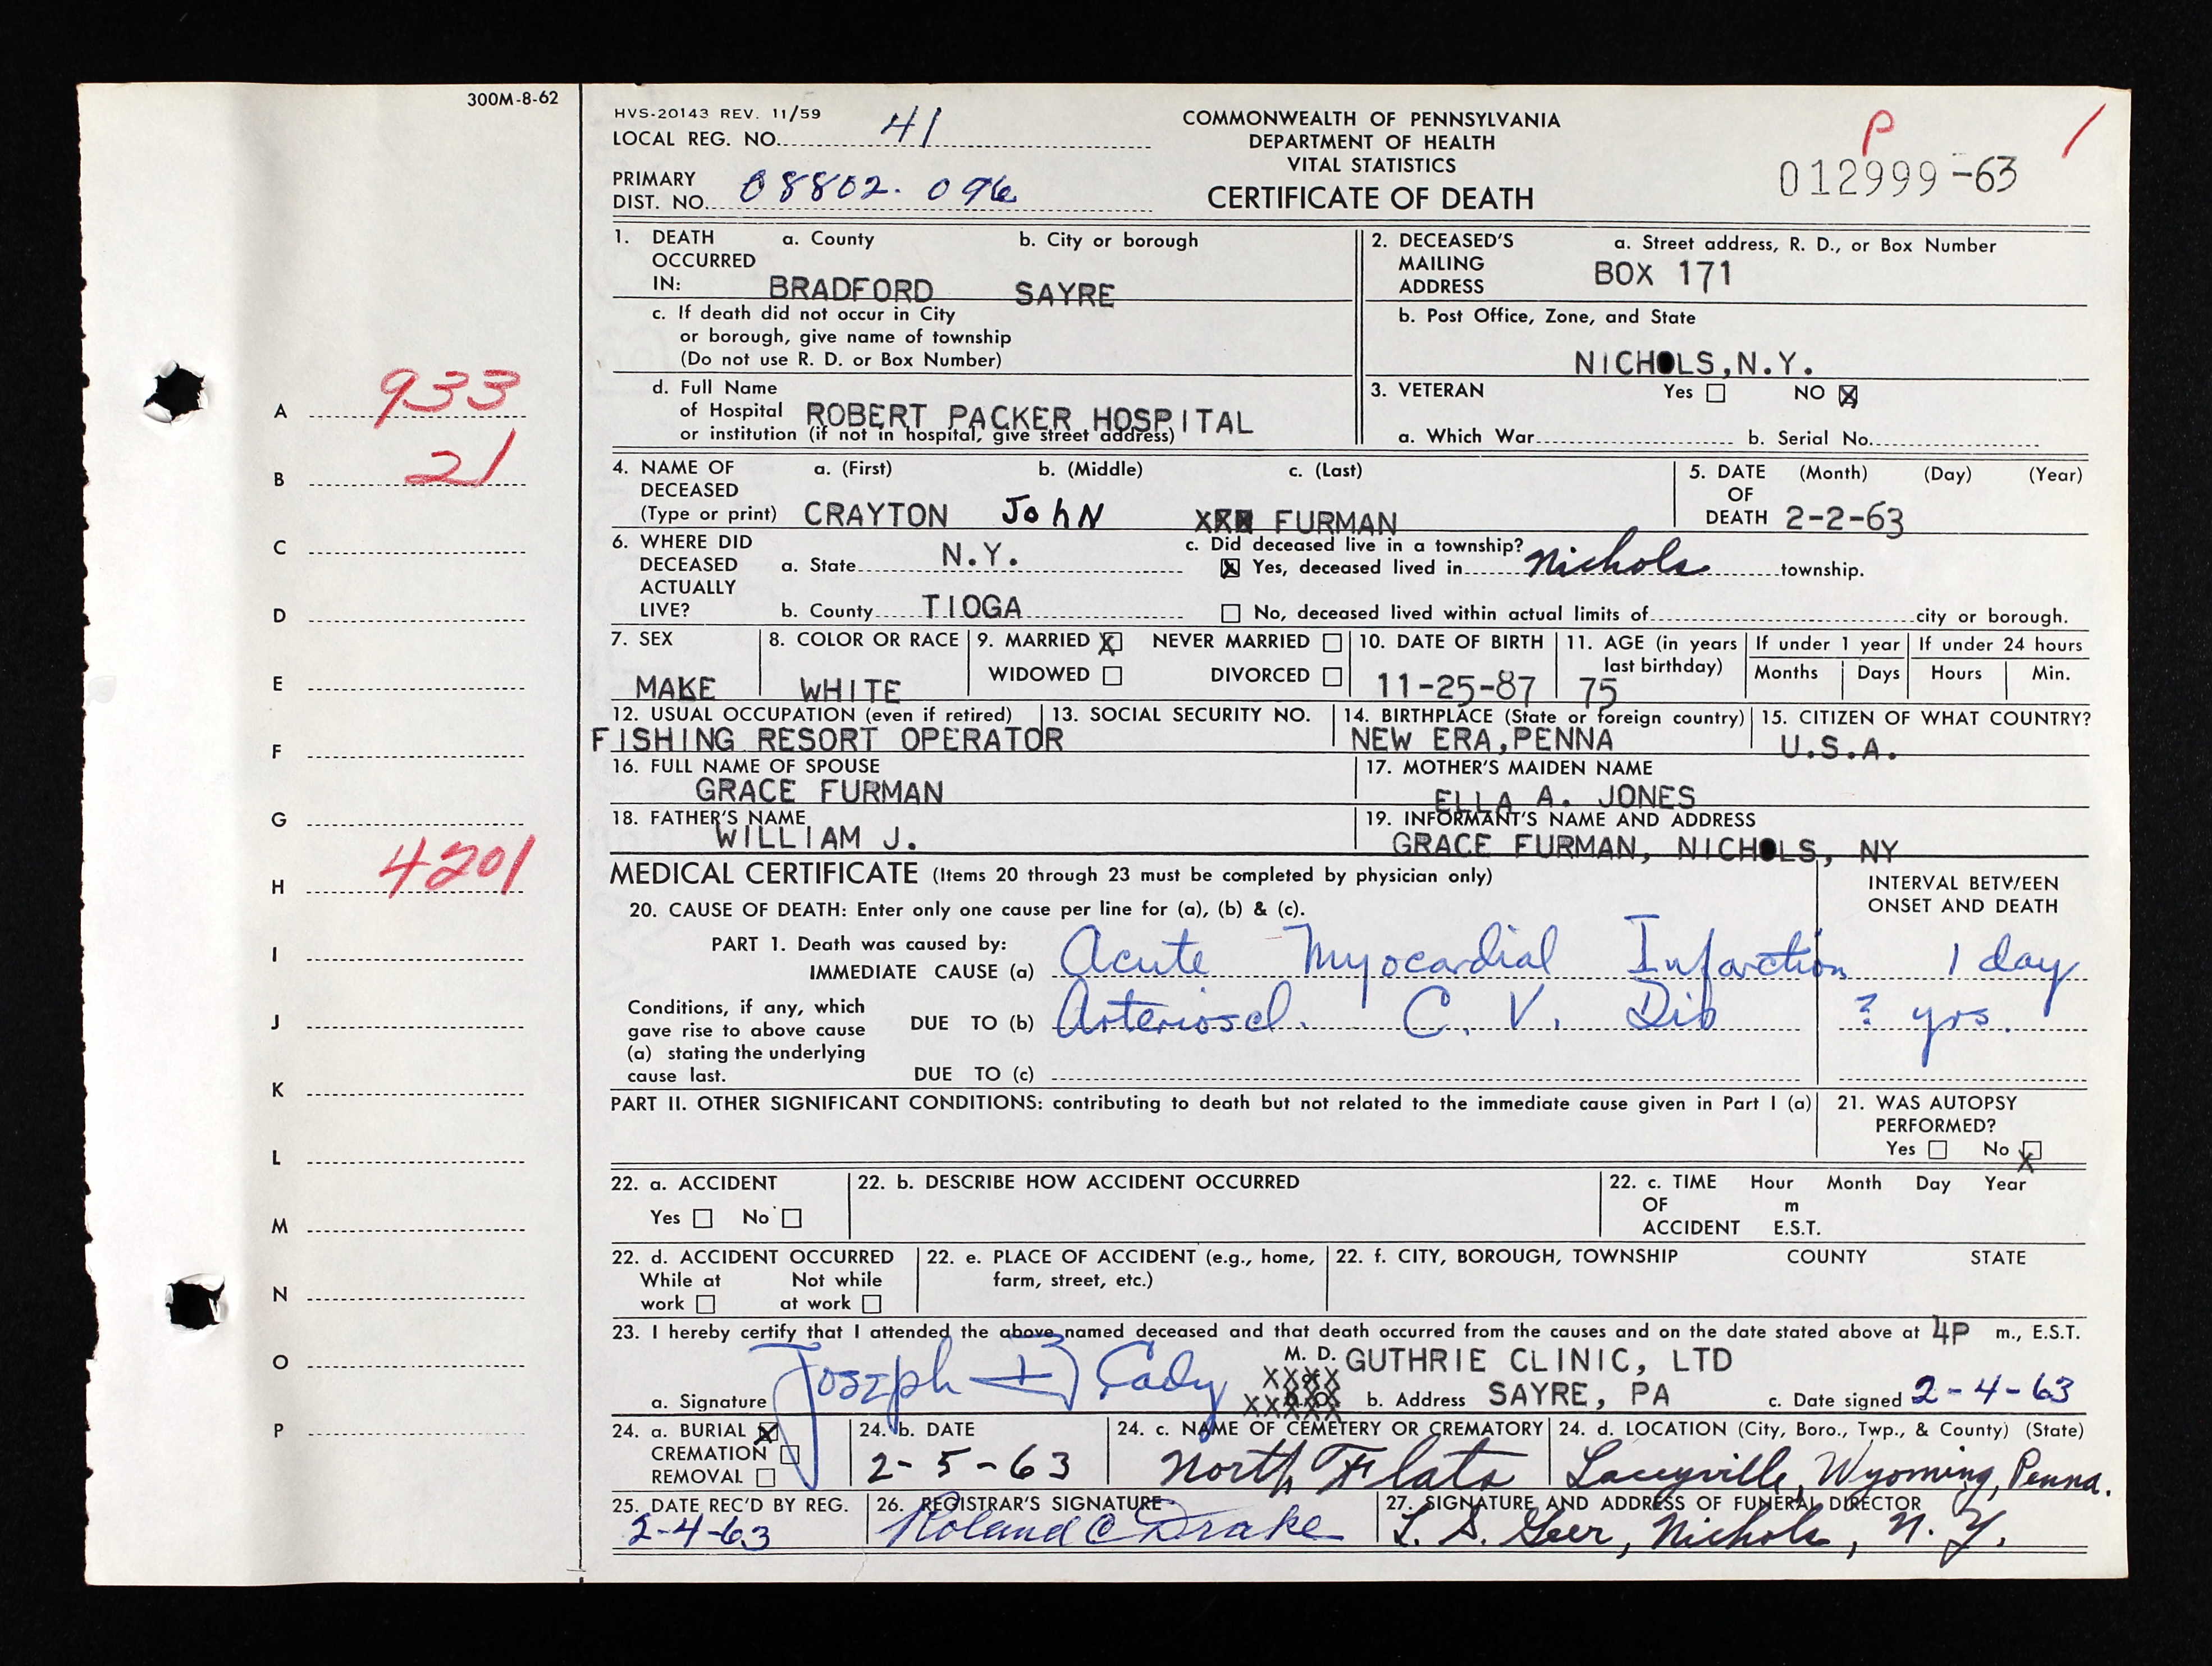 300M-8-62
HVS-20143 REV. 11/59
LOCAL REG. NO. 41
PRIMARY
DIST. NO. 08802. 096
COMMONWEALTH OF PENNSYLVANIA
DEPARTMENT OF HEALTH
VITAL STATISTICS
CERTIFICATE OF DEATH
P /
012999-63
1. DEATH OCCURRED IN: a. County b. City or borough
BRADFORD SAYRE
c. If death did not occur in City
or borough, give name of township
(Do not use R. D. or Box Number)
d. Full Name
of Hospital ROBERT PACKER HOSPITAL
or institution (if not in hospital, give street address)
2. DECEASED'S MAILING ADDRESS a. Street address, R. D., or Box Number
BOX 171
b. Post Office, Zone, and State
NICHOLS,N.Y.
3. VETERAN Yes ☐ NO ☒
a. Which War b. Serial No.
4. NAME OF DECEASED (Type or print) a. (First) b. (Middle) c. (Last)
CRAYTON JohN FURMAN
5. DATE OF DEATH (Month) (Day) (Year)
2-2-63
6. WHERE DID DECEASED ACTUALLY LIVE? a. State N.Y.
b. County TIOGA
c. Did deceased live in a township?
☒ Yes, deceased lived in Nichols township.
☐ No, deceased lived within actual limits of city or borough.
7. SEX
MAKE
8. COLOR OR RACE
WHITE
9. MARRIED ☒ NEVER MARRIED ☐
WIDOWED ☐ DIVORCED ☐
10. DATE OF BIRTH
11-25-87
11. AGE (in years last birthday)
75
If under 1 year If under 24 hours
Months Days Hours Min.
12. USUAL OCCUPATION (even if retired)
FISHING RESORT OPERATOR
13. SOCIAL SECURITY NO.
14. BIRTHPLACE (State or foreign country)
NEW ERA,PENNA
15. CITIZEN OF WHAT COUNTRY?
U.S.A.
16. FULL NAME OF SPOUSE
GRACE FURMAN
17. MOTHER'S MAIDEN NAME
ELLA A. JONES
18. FATHER'S NAME
WILLIAM J.
19. INFORMANT'S NAME AND ADDRESS
GRACE FURMAN, NICHOLS, NY
MEDICAL CERTIFICATE (Items 20 through 23 must be completed by physician only)
INTERVAL BETWEEN
ONSET AND DEATH
20. CAUSE OF DEATH: Enter only one cause per line for (a), (b) & (c).
PART 1. Death was caused by:
IMMEDIATE CAUSE (a) Acute Myocardial Infarction 1 day
Conditions, if any, which
gave rise to above cause
(a) stating the underlying
cause last.
DUE TO (b) Arterioscl. C. V. Dis ? yrs.
DUE TO (c)
PART II. OTHER SIGNIFICANT CONDITIONS: contributing to death but not related to the immediate cause given in Part I (a)
21. WAS AUTOPSY
PERFORMED?
Yes ☐ No ☒
22. a. ACCIDENT
Yes ☐ No ☐
22. b. DESCRIBE HOW ACCIDENT OCCURRED
22. c. TIME OF ACCIDENT Hour Month Day Year
m
E.S.T.
22. d. ACCIDENT OCCURRED
While at work ☐ Not while at work ☐
22. e. PLACE OF ACCIDENT (e.g., home,
farm, street, etc.)
22. f. CITY, BOROUGH, TOWNSHIP COUNTY STATE
23. I hereby certify that I attended the above named deceased and that death occurred from the causes and on the date stated above at 4P m., E.S.T.
a. Signature Joseph B Cady M. D.
GUTHRIE CLINIC, LTD
b. Address SAYRE, PA c. Date signed 2-4-63
24. a. BURIAL ☒
CREMATION ☐
REMOVAL ☐
24. b. DATE
2-5-63
24. c. NAME OF CEMETERY OR CREMATORY
North Flats
24. d. LOCATION (City, Boro., Twp., & County) (State)
Laceyville, Wyoming, Penna.
25. DATE REC'D BY REG.
2-4-63
26. REGISTRAR'S SIGNATURE
Roland C Drake
27. SIGNATURE AND ADDRESS OF FUNERAL DIRECTOR
L. S. Geer, Nichols, N. Y.
A 933
B 21
C
D
E
F
G
H 4201
I
J
K
L
M
N
O
P